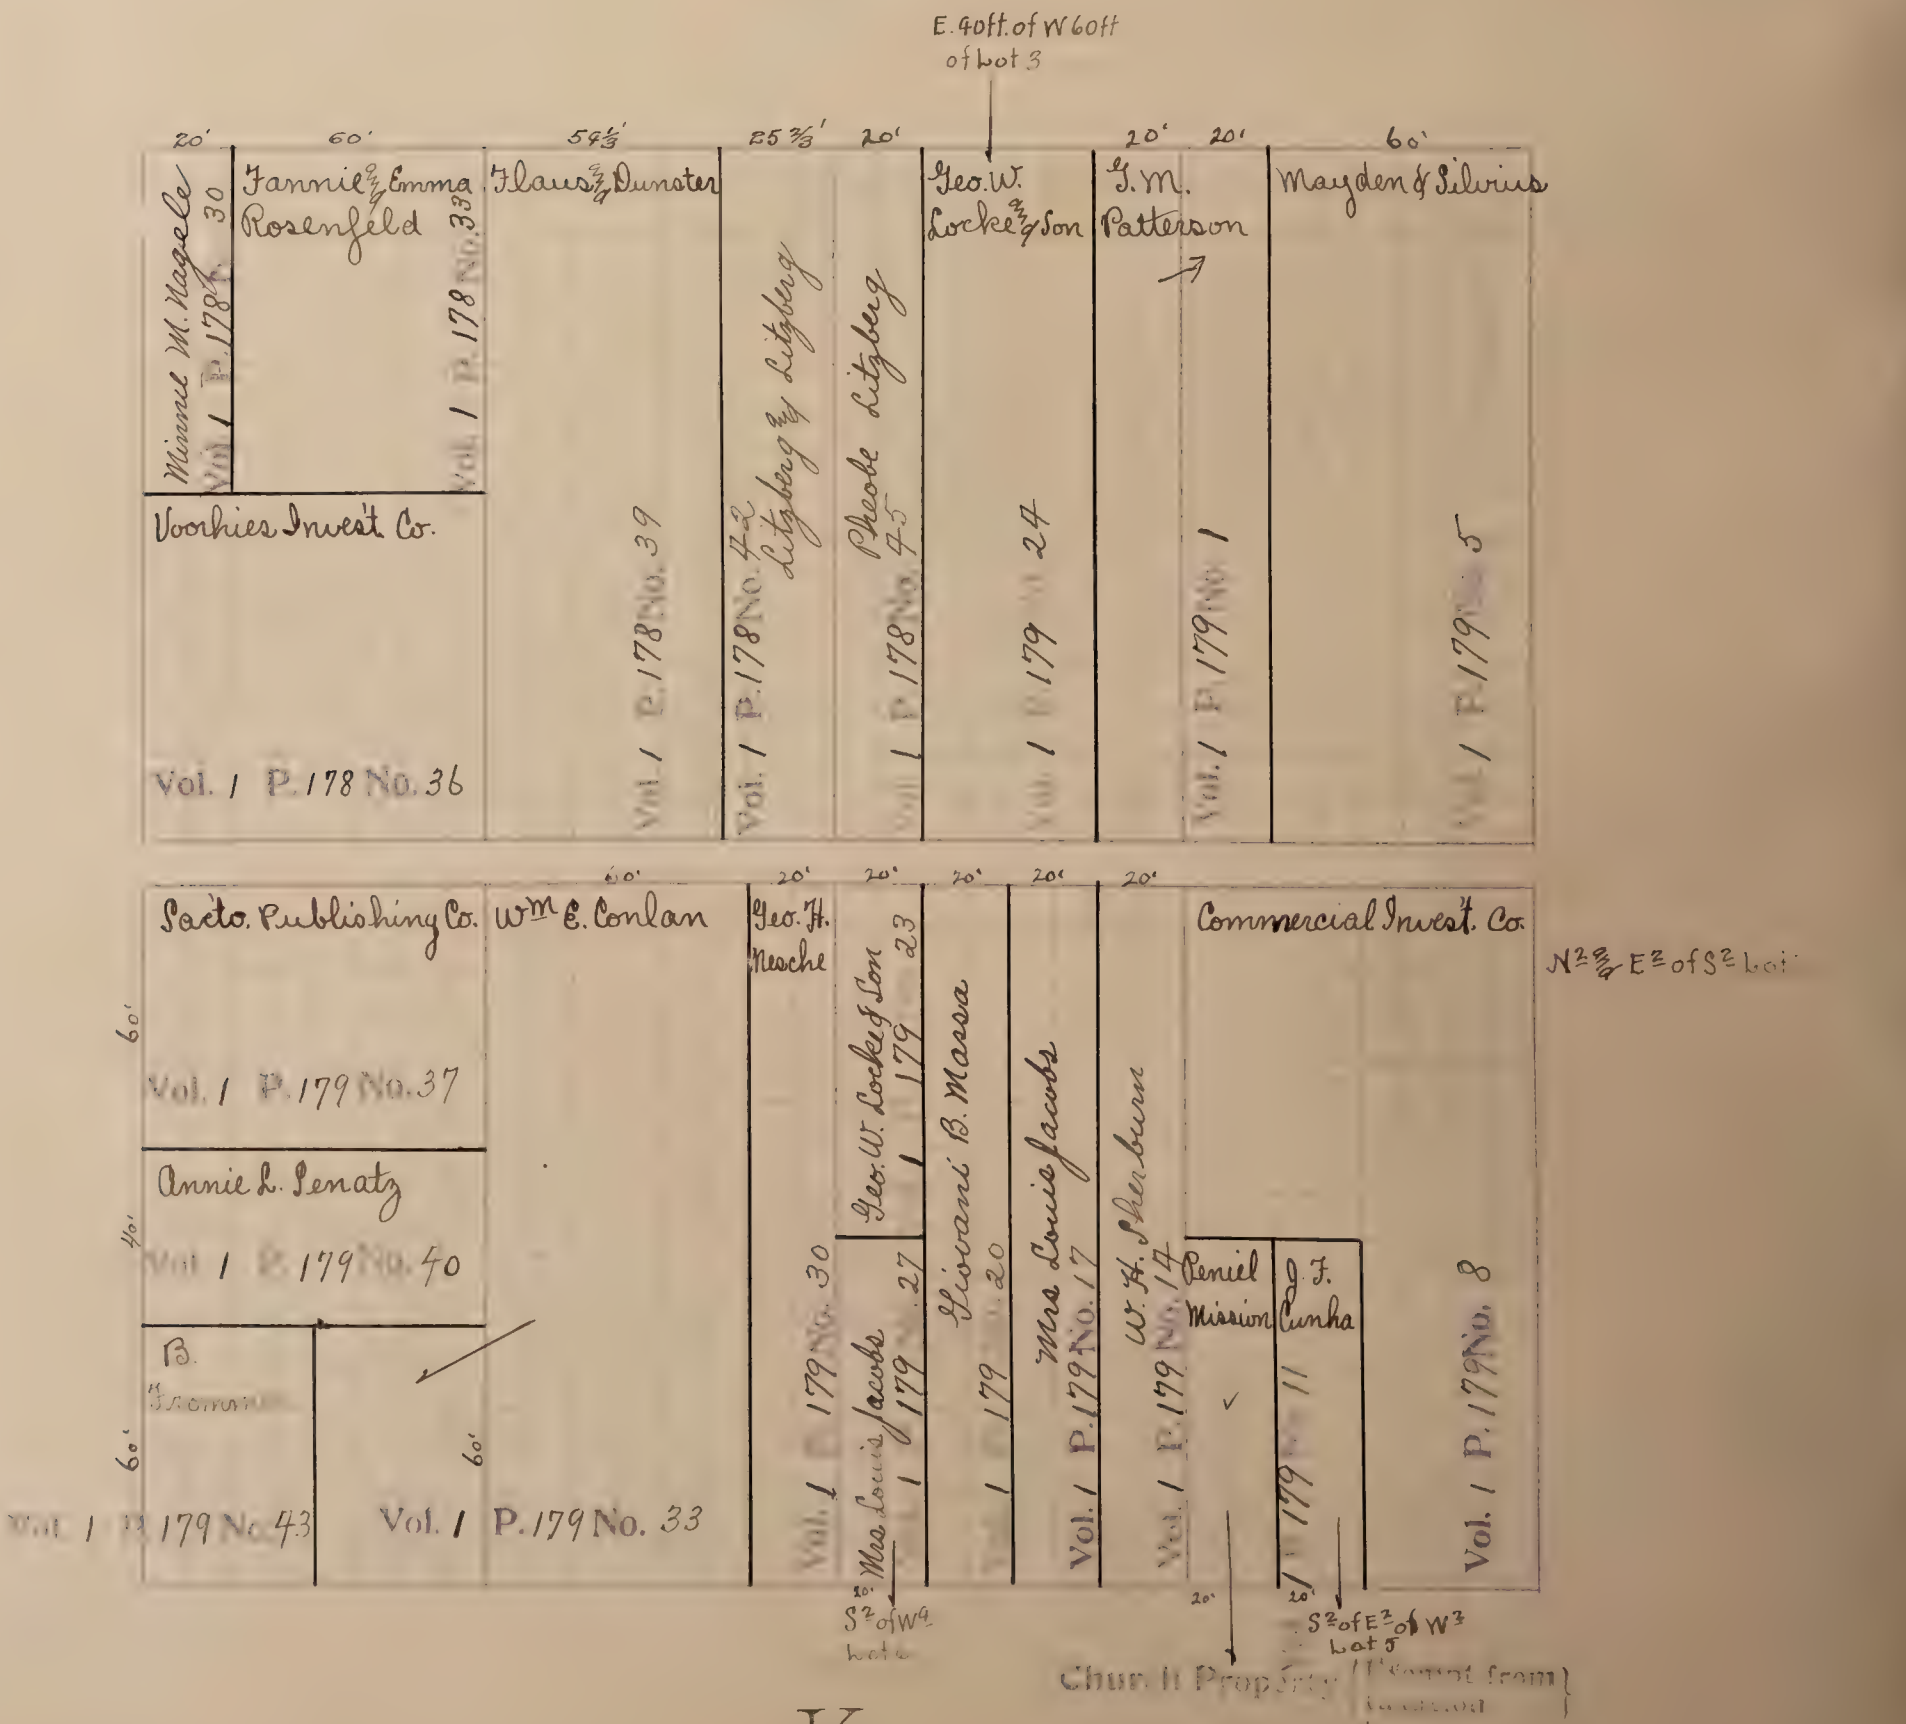 E. 40ft. of W 60ft
of Lot 3
20' 60' 54⅓' 25⅔' 20' 20' 20' 60'
Minnie M. Nagele
Vol. 1 P. 178 30
Fannie & Emma
Rosenfeld
Vol. 1 P. 178 No. 33
Flaus & Dunster
Vol. 1 P. 178 No. 39
Litzberg & Litzberg
Vol. 1 P. 178 No. 42
Pheobe Litzberg
Vol. 1 P. 178 No. 45
Geo. W.
Locke & Son
Vol. 1 P. 179 No. 24
G. M.
Patterson
Vol. 1 P. 179 No. 1
Mayden & Silvius
Vol. 1 P. 179 No. 5
Voorhies Inves't. Co.
Vol. 1 P. 178 No. 36
60' 20' 20' 20' 20' 20'
Sacto. Publishing Co.
60'
Vol. 1 P. 179 No. 37
Annie L. Senatz
40'
Vol. 1 P. 179 No. 40
B.
60'
Vol. 1 P. 179 No. 43
Wm E. Conlan
60'
Vol. 1 P. 179 No. 33
Geo. H.
Nesche
Vol. 1 P. 179 No. 30
Geo. W. Locke & Son
1 179 23
Mrs Louis Jacobs
1 179 27
20'
S² of W²
Giovani B. Massa
1 179 20
Mrs Louis Jacobs
Vol. 1 P. 179 No. 17
W. H. Sherburn
Vol. 1 P. 179 No. 14
Commercial Inves't. Co.
N² & E² of S² Lot
Vol. 1 P. 179 No. 8
Peniel
Mission
✓
20'
J. F.
Cunha
1 179 No. 11
20'
S² of E² of W²
Lot 5
Church Property (Exempt from
K